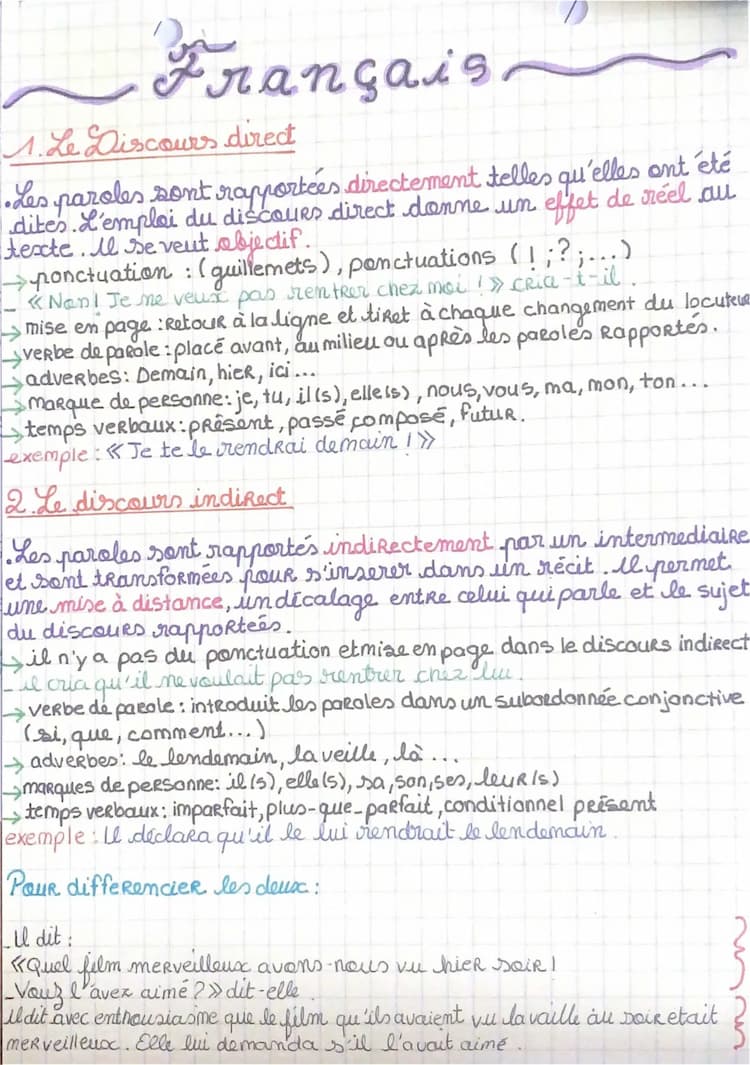 Français
1. Le Discours direct
. Les paroles sont rapportées directement telles qu'elles ont été
dites. L'emploi du discours direct donne un effet de réel au
texte. Il se veut objectif.
→ ponctuation : (guillemets), ponctuations (! ; ? ; ...)
_ « Non! Je ne veux pas rentrer chez moi !» cria-t-il.
→ mise en page : Retour à la ligne et tiret à chaque changement du locuteur
→ verbe de parole : placé avant, au milieu ou après les paroles Rapportés.
→ adverbes: Demain, hier, ici...
→ marque de personne: je, tu, il(s), elle(s), nous, vous, ma, mon, ton...
→ temps verbaux: présent, passé composé, futur.
exemple : « Je te le rendrai demain !»
2. Le discours indirect
. Les paroles sont rapportés indirectement par un intermediaire
et sont transformées pour s'inserer dans un récit. Il permet
une mise à distance, un décalage entre celui qui parle et le sujet
du discours rapporteés.
→ il n'y a pas du ponctuation et mise en page dans le discours indirect
_ il cria qu'il ne voulait pas rentrer chez lui.
→ verbe de parole : introduit les paroles dans un subordonnée conjonctive
(si, que, comment...)
→ adverbes: le lendemain, la veille, là ...
→ marques de personne: il(s), elle(s), sa, son, ses, leur(s)
→ temps verbaux: imparfait, plus-que-parfait, conditionnel présent
exemple : Il déclara qu'il le lui rendrait le lendemain.
Pour differencier les deux :
_ Il dit :
«Quel film merveilleux avons-nous vu hier soir!
_ Vous l'avez aimé ?» dit-elle.
Il dit avec enthousiasme que le film qu'ils avaient vu la vaille au soir etait
merveilleux. Elle lui demanda s'il l'avait aimé.